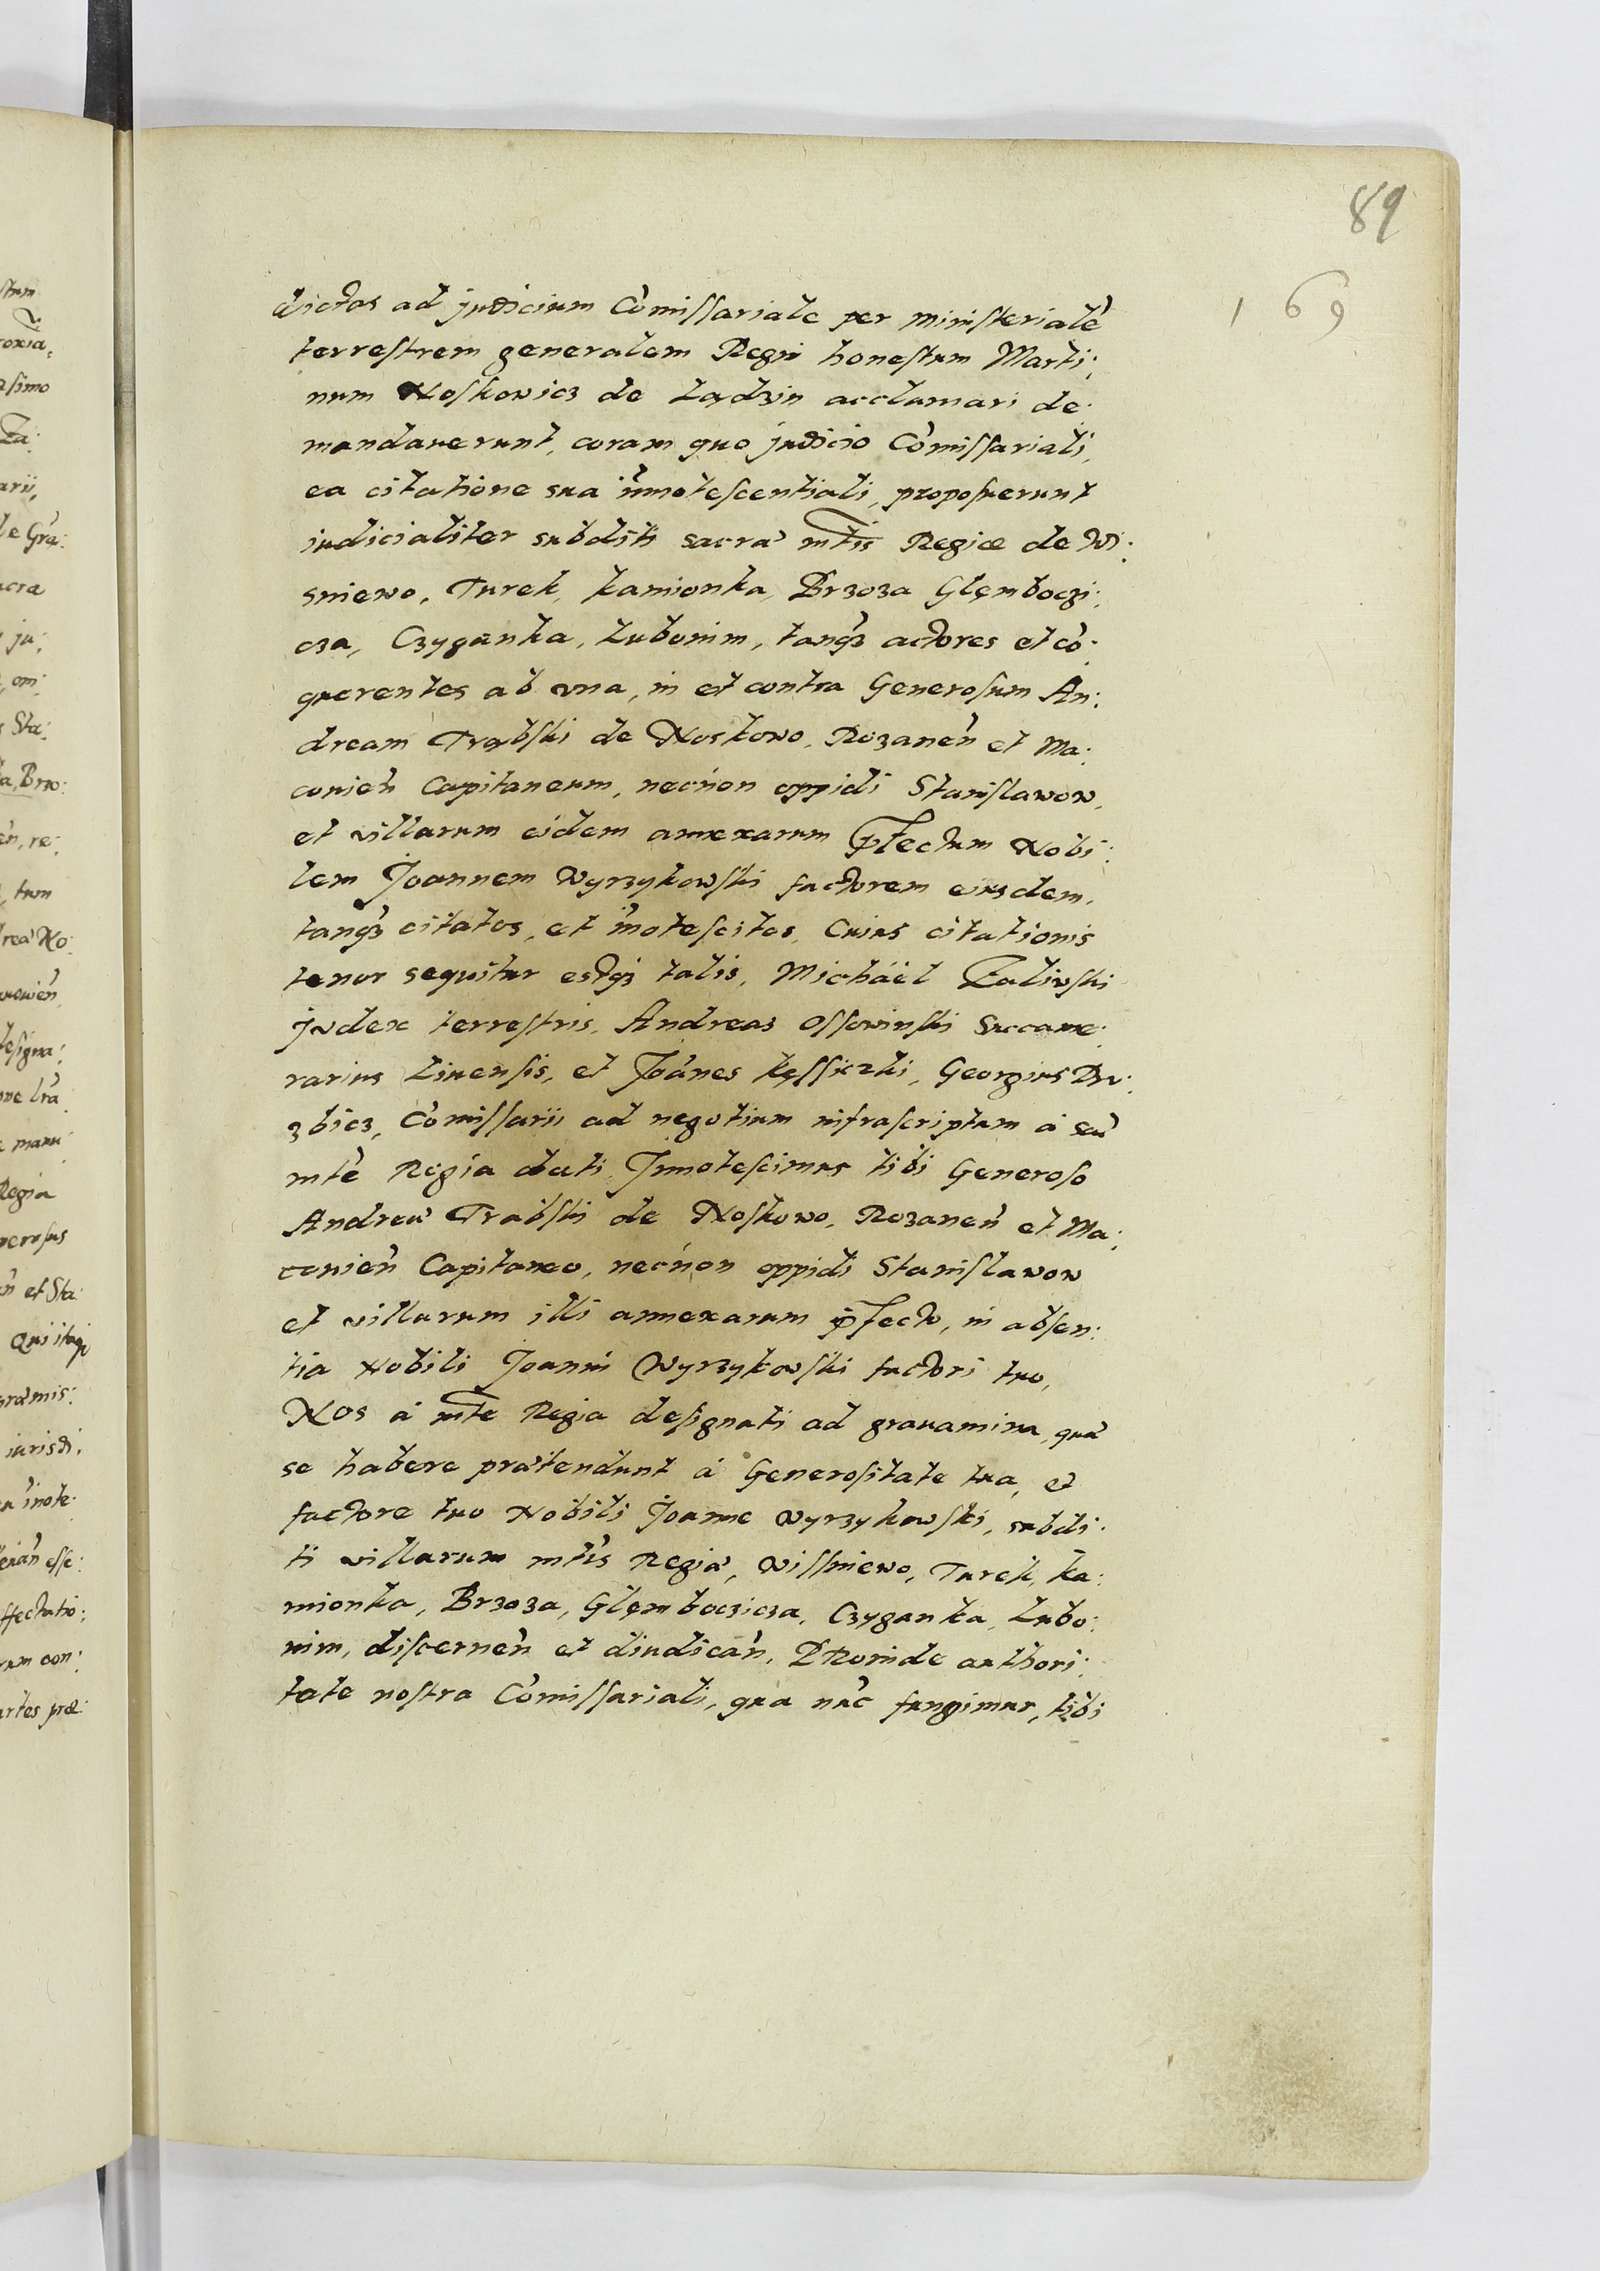 89
1 69
dictos ad judicium Comissariale per ministeriale
terrestrem generalem Regni honestum Marti:
num Noskowicz de Lądzin acclamari de:
mandauerunt, coram quo judicio Comissariali,
ea citatione sua innotescentiali, proposuerunt
iudicialiter subditi sacra mtis Regiæ de Wi:
sniewo, Turek, kamionka, Brzoza Glęmboczi:
cza, Czyganka, Lubomin, tanqz actores et co:
querentes ab vna, in et contra Generosum An:
dream Trąbski de Noskowo, Rozanen et Ma:
couien Capitaneum, necnon oppidi Stanislawow,
et villarum eidem annexarum pfectum Nobi:
lem Joannem Wyrzykowski factorem eiusdem,
tanqz citatos, et inotescitos, Cuius citationis
tenor sequitur estqz talis, Michäel Zaliwski
judex terrestris, Andreas Ossowinski Succame:
rarius Liuensis, et Joanes kęssiczki, Georgius Dru:
zbicz, Comissarii ad negotium infrascriptum à sac
mte Regia dati Innotescimus tibi Generoso
Andrea Trąbski de Noskowo, Rozanen et Ma:
couien Capitaneo, necnon oppidi Stanislawow
et villarum illi annexarum pfecto, in absen:
tia Nobili Joanni Wyrzykowski factori tuo,
Nos à mte Regia designati ad grauamina, qua
se habere prætendunt à Generositate tua, et
factore tuo Nobili Joanne Wyrzykowski, subdi:
ti villarum mtis Regia, Wissniewo, Turek, ka:
mionka, Brzoza, Glęmboczicza, Czyganka, Lubo:
min, discernen et diudican, Proinde authori:
tate nostra Comissariali, qua nuc fungimur, tibi